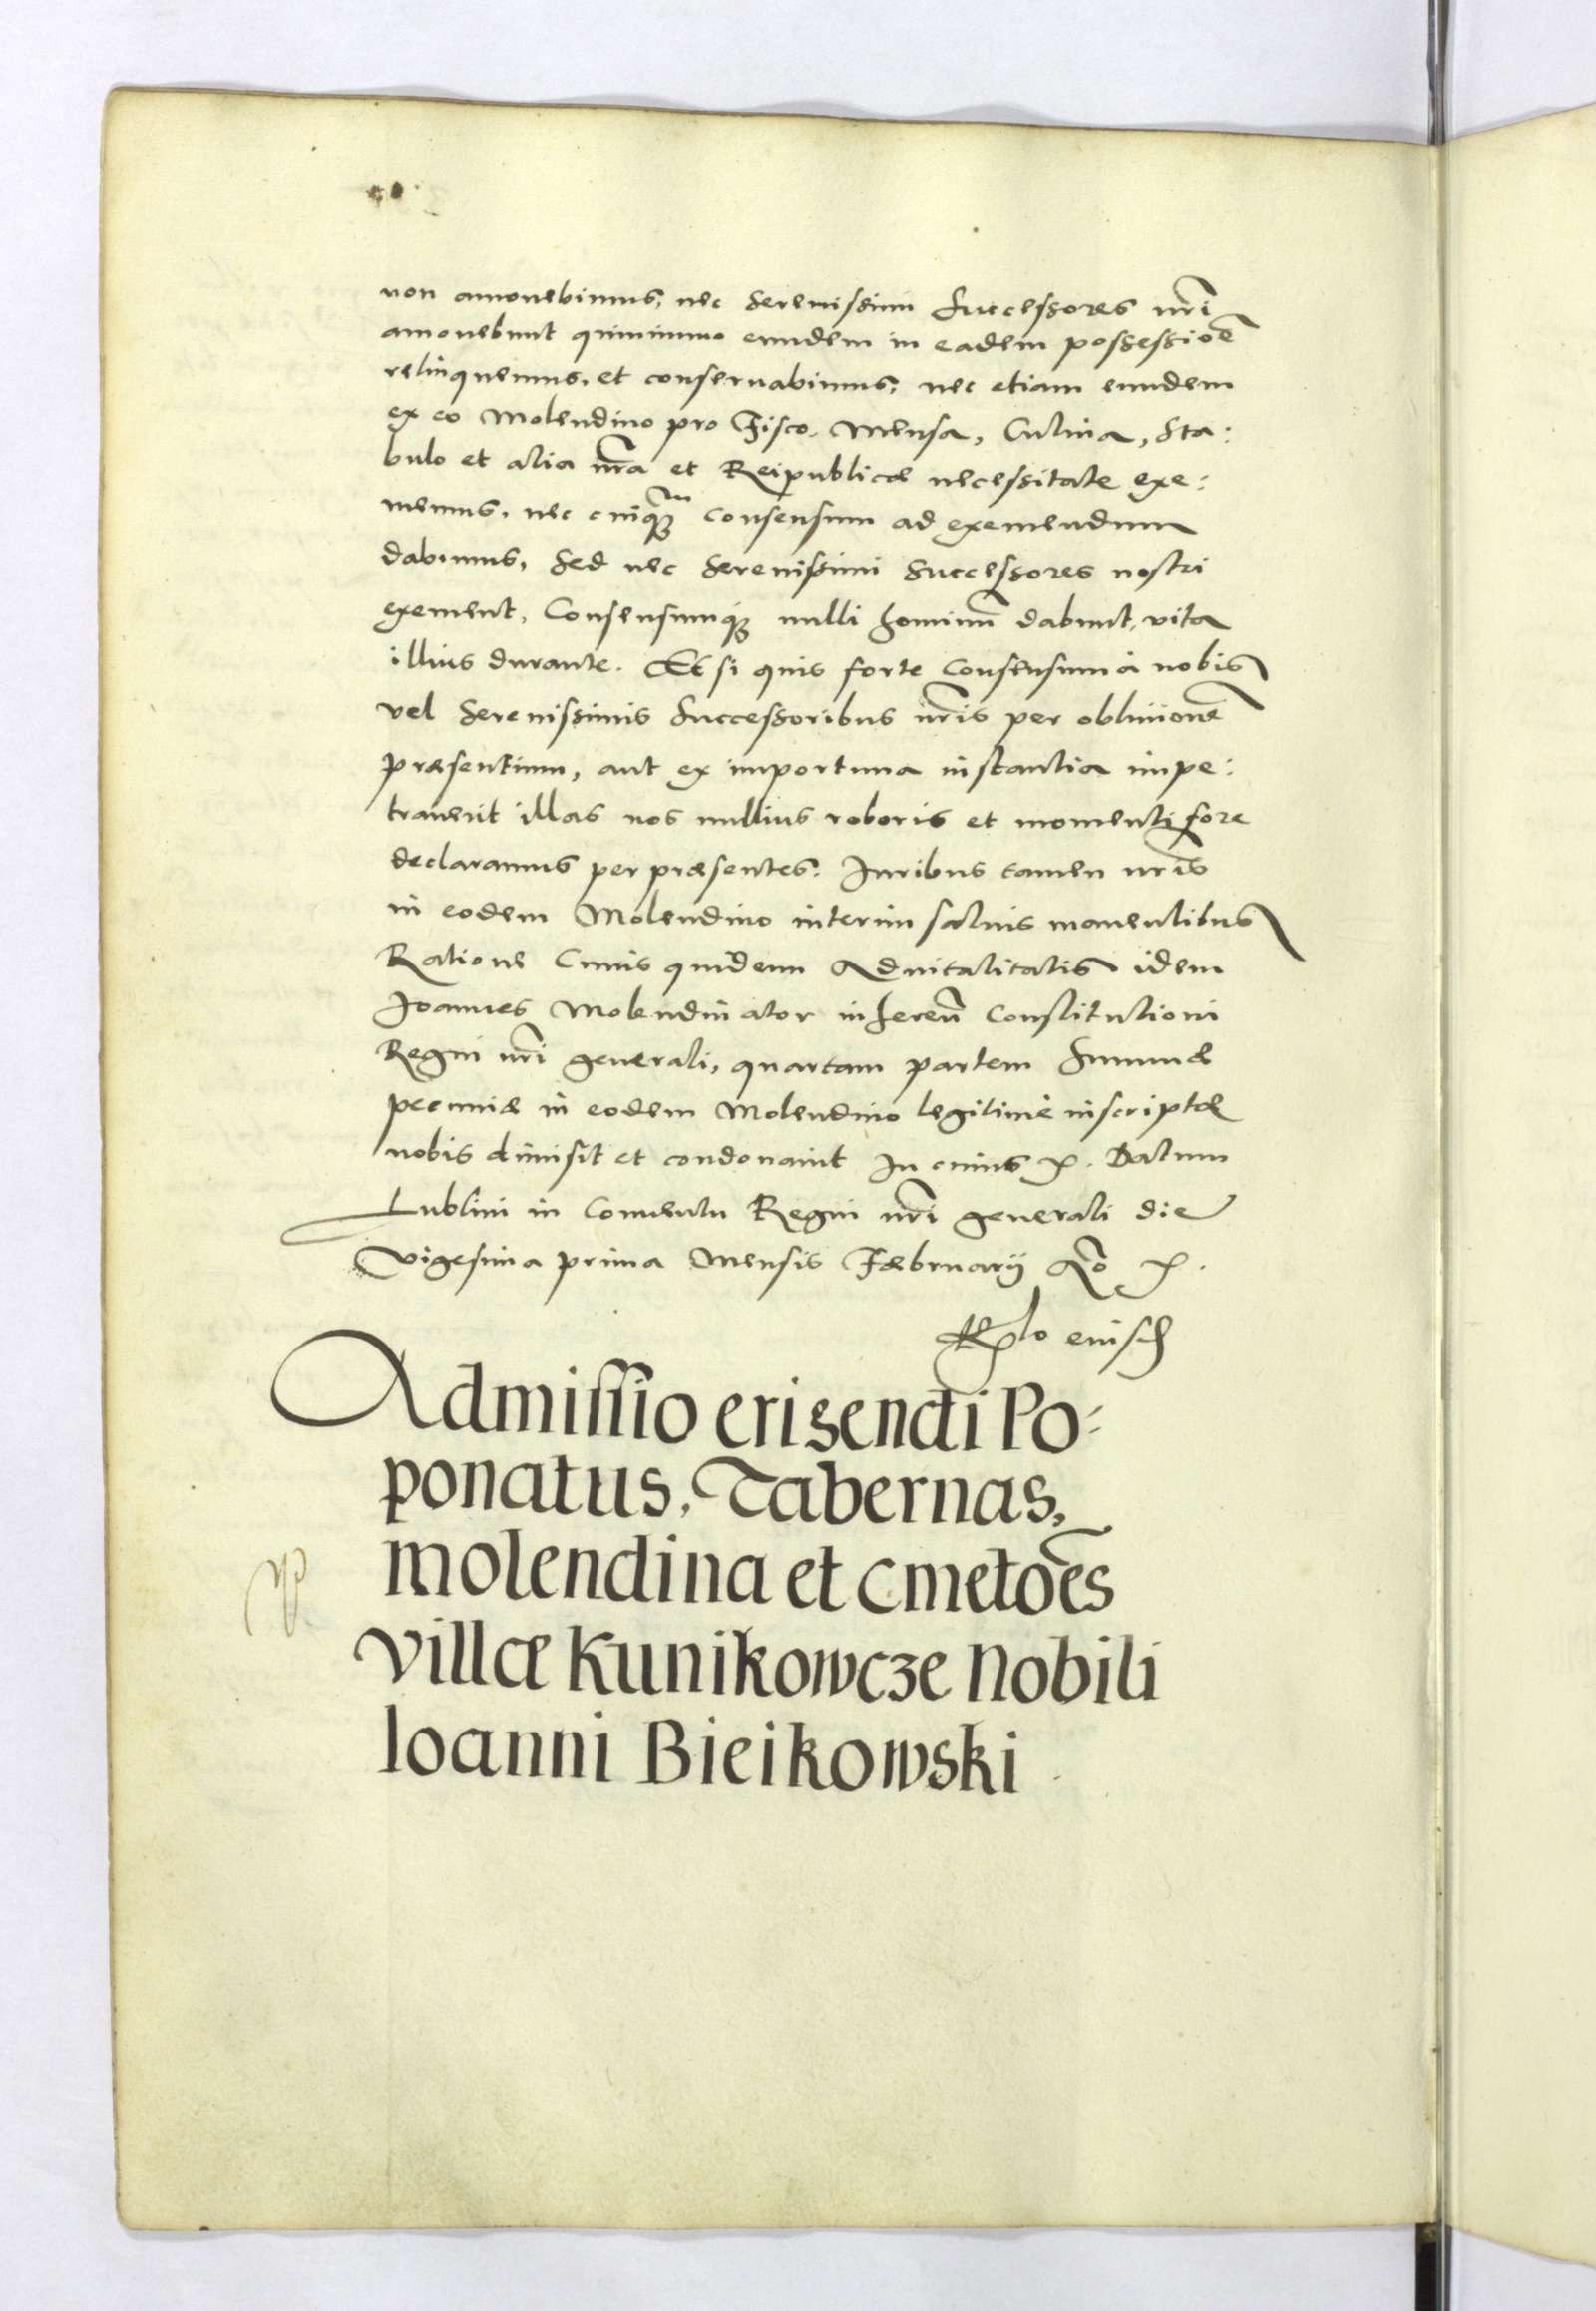 non amouebimus, nec Serenissimi Successores nr̃i
amouebunt quinimmo eundem in eadem possessioẽ
relinquemus, et conseruabimus, nec etiam eundem
ex eo Molendino pro Fisco, Mensa, Culina, Sta:
bulo et alia nr̃a et Reipublicæ necessitate exe:
memus, nec cuiqꝫ consensum ad exemendum
dabimus, Sed nec Serenissimi Successores nostri
exement, Consensumqꝫ nulli hominũ dabunt, vita
illius durante. Et si quis forte Consensum à nobis
vel Serenissimis Successoribus nr̃is per obliuionẽ
præsentium, aut ex importuna instantia impe:
trauerit illas nos nullius roboris et momenti fore
declaramus per præsentes. Iuribus tamen nr̃is
in eodem Molendino interim saluis manentibus
Ratione Cuius quidem Aduitalitatis idem
Joannes Molendinator inhereñ Constitutioni
Regni nr̃i generali, quartam partem Summæ
pecuniæ in eodem Molendino legitimè inscriptæ
nobis dimisit et condonauit In cuius . Datum
Lublini in Conuentu Regni nr̃i generali die
vigesima prima Mensis Februarij Ao
eiusd
Admissio erisendi Po:
ponatus, Tabernas,
molendina et cmetoẽs
villæ Kunikowcze nobili
Ioanni Bieikowski